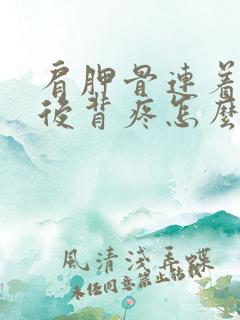 肩胛骨连着
後背疼怎麼
風清淺弄蝶
未经同意禁止转载